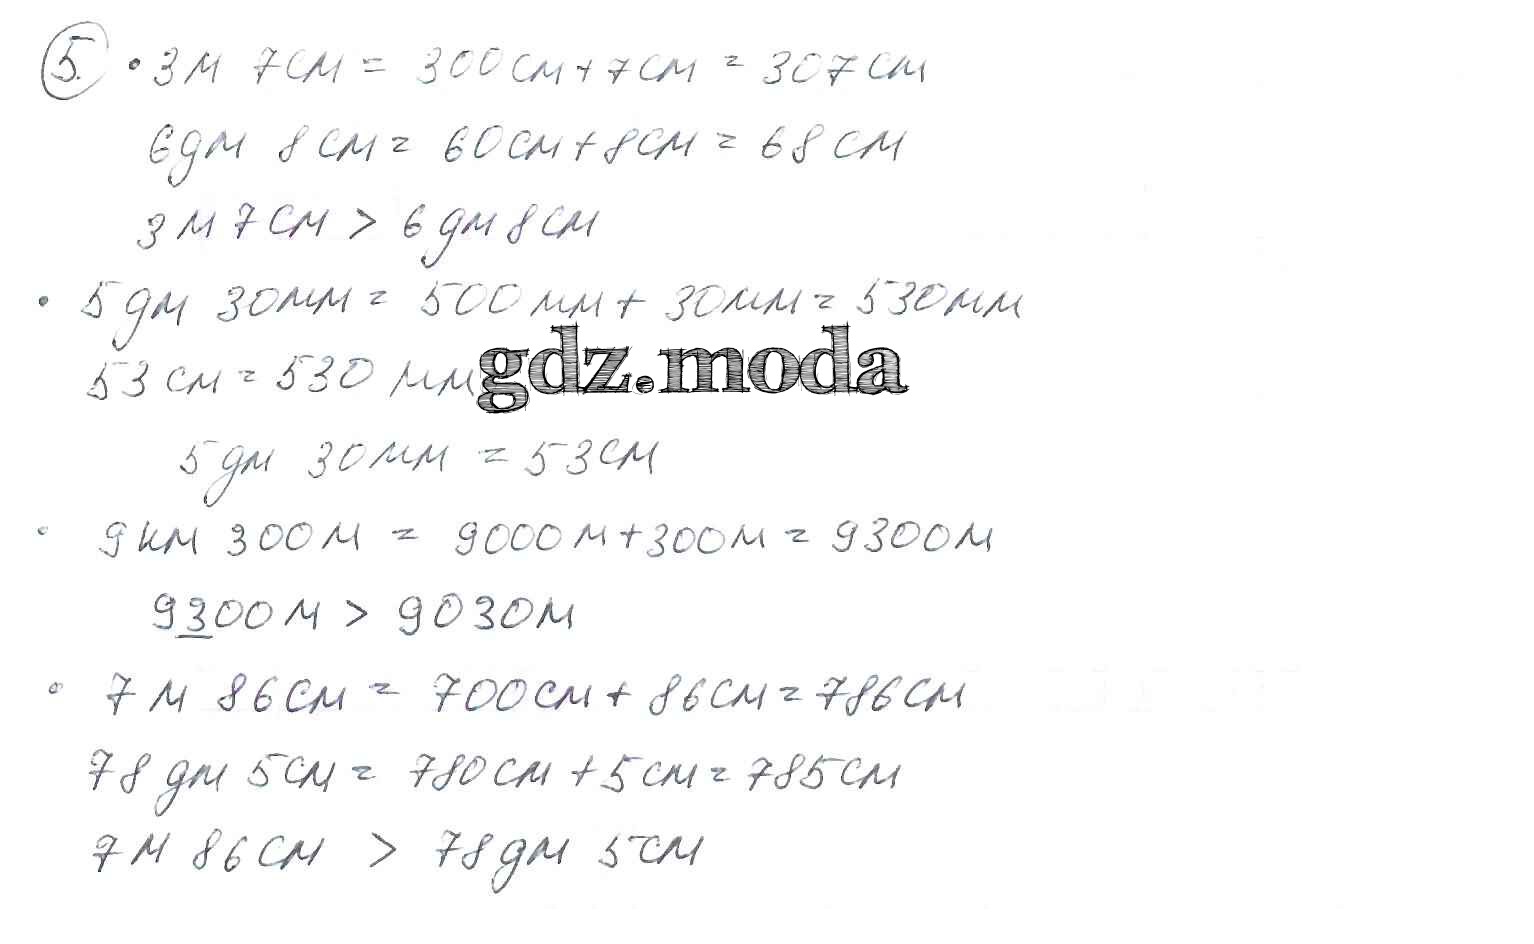 5. • 3м 7см = 300см+7см = 307см
6дм 8см = 60см+8см = 68см
3м7см > 6дм8см
• 5дм 30мм = 500мм + 30мм = 530мм
53см = 530 мм
gdz.moda
5дм 30мм = 53см
• 9км 300м = 9000м+300м = 9300м
9300м > 9030м
• 7м 86см = 700см + 86см = 786см
78дм 5см = 780см + 5см = 785см
7м 86см > 78дм 5см